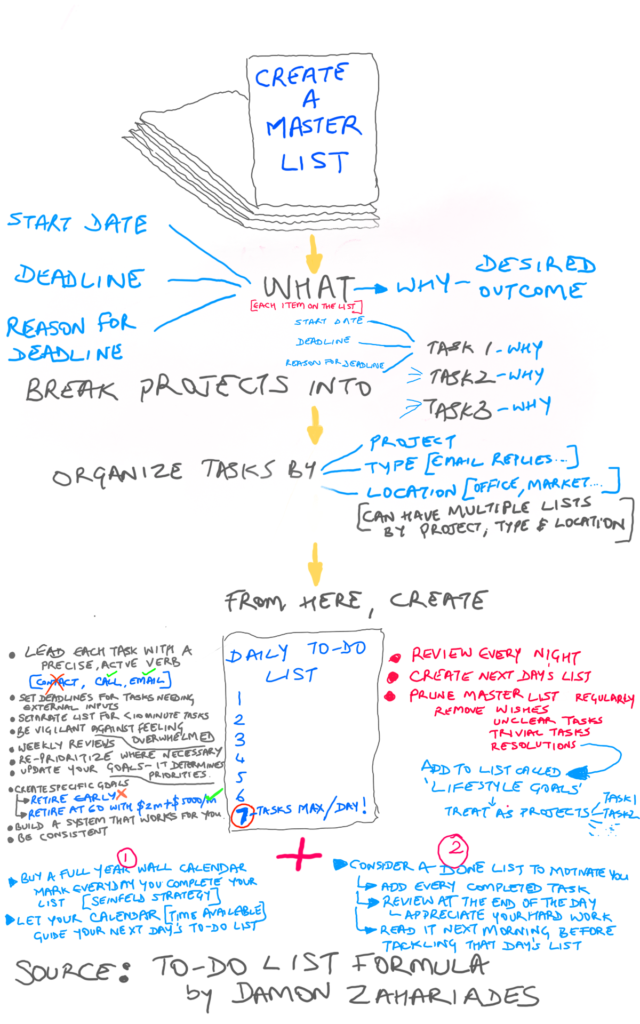 CREATE
A
MASTER
LIST
START DATE
DEADLINE
REASON FOR
DEADLINE
WHAT
[EACH ITEM ON THE LIST]
WHY - DESIRED
OUTCOME
START DATE
DEADLINE
REASON FOR DEADLINE
TASK 1 - WHY
TASK2 - WHY
TASK3 - WHY
BREAK PROJECTS INTO
ORGANIZE TASKS BY
PROJECT
TYPE [EMAIL REPLIES...]
LOCATION [OFFICE, MARKET....]
[CAN HAVE MULTIPLE LISTS
BY PROJECT, TYPE & LOCATION]
FROM HERE, CREATE
• LEAD EACH TASK WITH A
PRECISE, ACTIVE VERB
[CONTACT, CALL, EMAIL]
• SET DEADLINES FOR TASKS NEEDING
EXTERNAL INPUTS
• SEPARATE LIST FOR <10 MINUTE TASKS
• BE VIGILANT AGAINST FEELING
OVERWHELMED
• WEEKLY REVIEWS
• RE-PRIORITIZE WHERE NECESSARY
• UPDATE YOUR GOALS - IT DETERMINES
PRIORITIES.
• CREATE SPECIFIC GOALS
RETIRE EARLY
RETIRE AT 60 WITH $2M + $5000/M
• BUILD A SYSTEM THAT WORKS FOR YOU
• BE CONSISTENT
DAILY TO-DO
LIST
1
2
3
4
5
6
7 - TASKS MAX/DAY!
• REVIEW EVERY NIGHT
• CREATE NEXT DAY'S LIST
• PRUNE MASTER LIST REGULARLY
REMOVE WISHES
UNCLEAR TASKS
TRIVIAL TASKS
RESOLUTIONS
ADD TO LIST CALLED
'LIFESTYLE GOALS'
TREAT AS PROJECTS
TASK1
TASK2
1
BUY A FULL YEAR WALL CALENDAR
MARK EVERYDAY YOU COMPLETE YOUR
LIST [SEINFELD STRATEGY]
LET YOUR CALENDAR [TIME AVAILABLE]
GUIDE YOUR NEXT DAY'S TO-DO LIST
+
2
CONSIDER A DONE LIST TO MOTIVATE YOU
ADD EVERY COMPLETED TASK
REVIEW AT THE END OF THE DAY
- APPRECIATE YOUR HARD WORK
READ IT NEXT MORNING BEFORE
TACKLING THAT DAY'S LIST
SOURCE: TO-DO LIST FORMULA
by DAMON ZAHARIADES